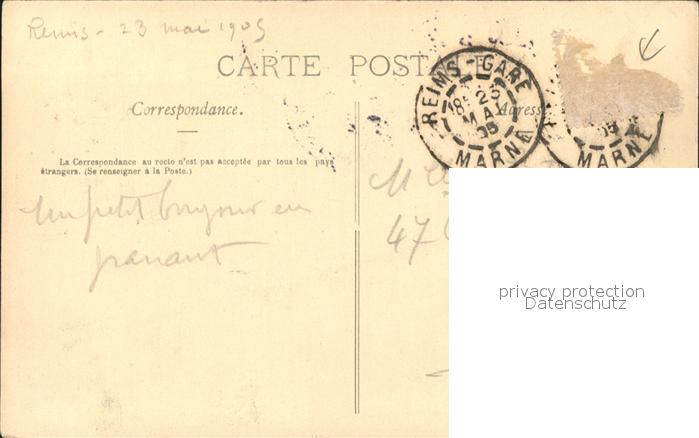 Reims - 23 mai 1905
CARTE POST
REIMS-GARE
18 23
MAI
05
MARNE
05
MARNE
Correspondance.
Adresse
La Correspondance au recto n'est pas acceptée par tous les pays
étrangers. (Se renseigner à la Poste.)
Un petit bonjour en
passant
M
47
privacy protection
Datenschutz